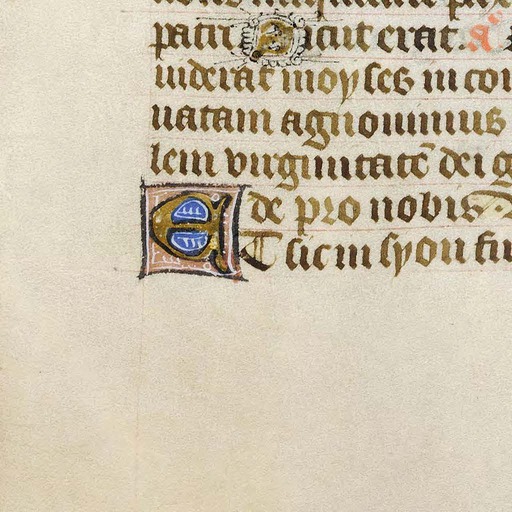 patri Sicut erat. a
uiderat moyses in co
uatam agnouimus
lem virginitatē dei g
de pro nobis.
Et sic in syon fir